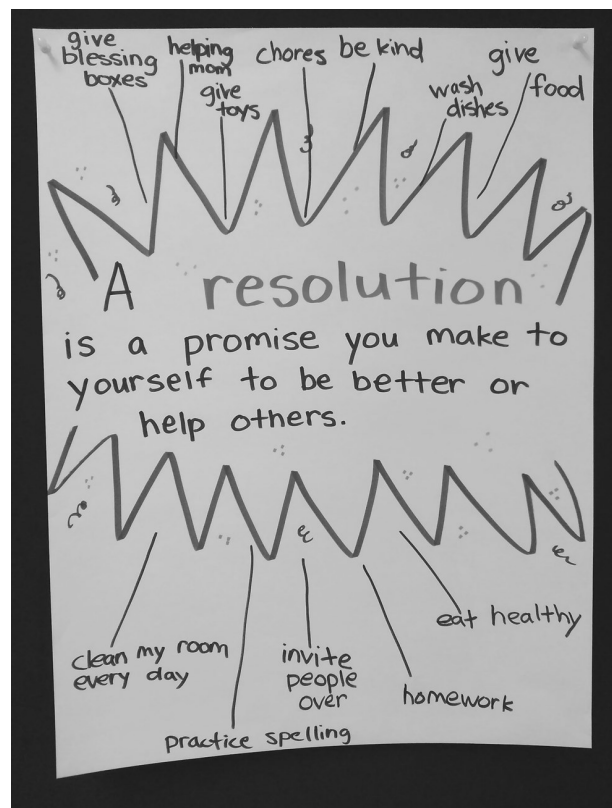 give
blessing
boxes
helping
mom
give
toys
chores
be kind
wash
dishes
give
food
A resolution
is a promise you make to
yourself to be better or
help others.
clean my room
every day
practice spelling
invite
people
over
homework
eat healthy